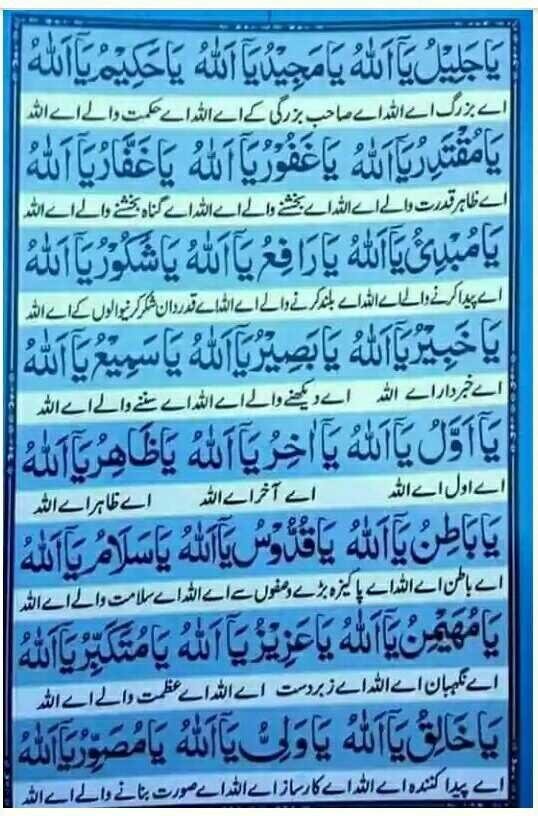 يَا جَلِيْلُ يَآ اَللّٰهُ يَا مَجِيْدُ يَآ اَللّٰهُ يَا حَكِيْمُ يَآ اَللّٰهُ
اے بزرگ اے اللہ اے صاحب بزرگی کے اے اللہ اے حکمت والے اے اللہ
يَا مُقْتَدِرُ يَآ اَللّٰهُ يَا غَفُوْرُ يَآ اَللّٰهُ يَا غَفَّارُ يَآ اَللّٰهُ
اے ظاہر قدرت والے اے اللہ اے بخشنے والے اے اللہ اے گناہ بخشنے والے اے اللہ
يَا مُبْدِئُ يَآ اَللّٰهُ يَا رَافِعُ يَآ اَللّٰهُ يَا شَكُوْرُ يَآ اَللّٰهُ
اے پیدا کرنے والے اے اللہ اے بلند کرنے والے اے اللہ اے قدردان شکر کرنیوالوں کے اے اللہ
يَا خَبِيْرُ يَآ اَللّٰهُ يَا بَصِيْرُ يَآ اَللّٰهُ يَا سَمِيْعُ يَآ اَللّٰهُ
اے خبردار اے اللہ اے دیکھنے والے اے اللہ اے سننے والے اے اللہ
يَآ اَوَّلُ يَآ اَللّٰهُ يَآ اٰخِرُ يَآ اَللّٰهُ يَا ظَاهِرُ يَآ اَللّٰهُ
اے اول اے اللہ اے آخر اے اللہ اے ظاہر اے اللہ
يَا بَاطِنُ يَآ اَللّٰهُ يَا قُدُّوْسُ يَآ اَللّٰهُ يَا سَلَامُ يَآ اَللّٰهُ
اے باطن اے اللہ اے پاکیزہ بڑے وصفوں سے اے اللہ اے سلامت والے اے اللہ
يَا مُهَيْمِنُ يَآ اَللّٰهُ يَا عَزِيْزُ يَآ اَللّٰهُ يَا مُتَكَبِّرُ يَآ اَللّٰهُ
اے نگہبان اے اللہ اے زبردست اے اللہ اے عظمت والے اے اللہ
يَا خَالِقُ يَآ اَللّٰهُ يَا وَلِيُّ يَآ اَللّٰهُ يَا مُصَوِّرُ يَآ اَللّٰهُ
اے پیدا کنندہ اے اللہ اے کارساز اے اللہ اے صورت بنانے والے اے اللہ